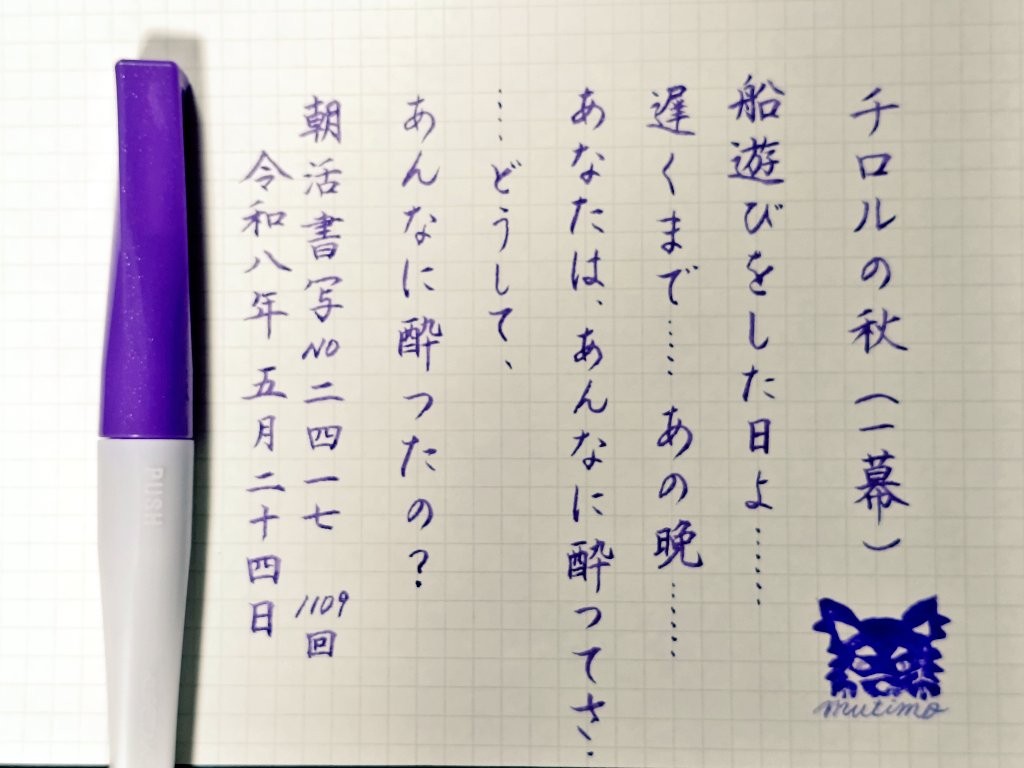 チロルの秋(一幕)
船遊びをした日よ……
遅くまで…… あの晩……
あなたは、あんなに酔つてさ…
…どうして、
あんなに酔つたの?
朝活書写NO二四一七 1109回
令和八年 五月二十四日
mutimo
PUSH